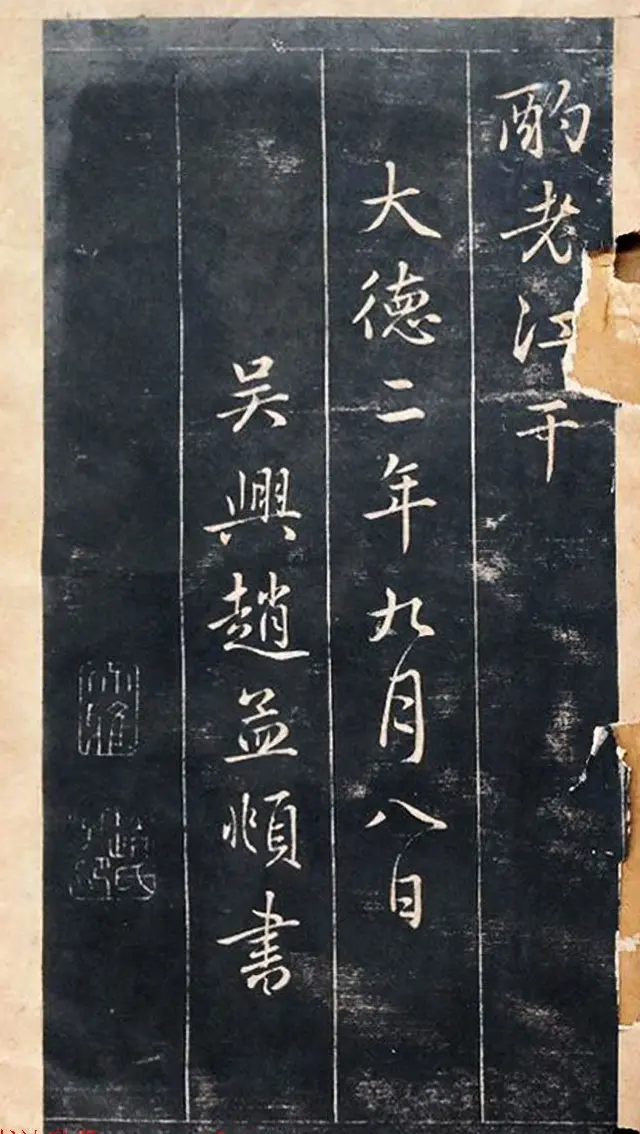 酌老江干
大德二年九月八日
吴興趙孟頫書